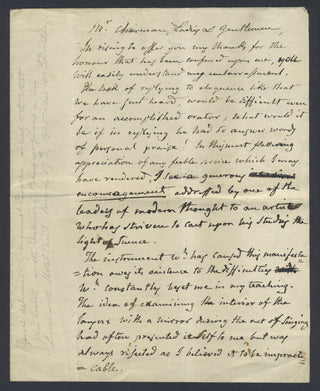 Mr. Chairman, Ladies & Gentlemen,
In rising to offer you my thanks for the
honour that has been conferred upon me, you
will easily understand my embarrassment.
The task of replying to eloquence like that
we have just heard, would be difficult even
for an accomplished orator, what would it
be if in replying he had to answer words
of personal praise! In this most flattering
appreciation of any feeble service which I may
have rendered, I see a generous
encouragement addressed by one of the
leaders of modern thought to an artist
who has striven to cast upon his studies the
light of Science.
The instrument wh. has caused this manifesta
=tion owes its existence to the difficulties
wh. constantly beset me in my teaching.
The idea of examining the interior of the
larynx with a mirror during the act of singing
had often presented itself to me but was
always rejected as I believed it to be impracti
=cable.